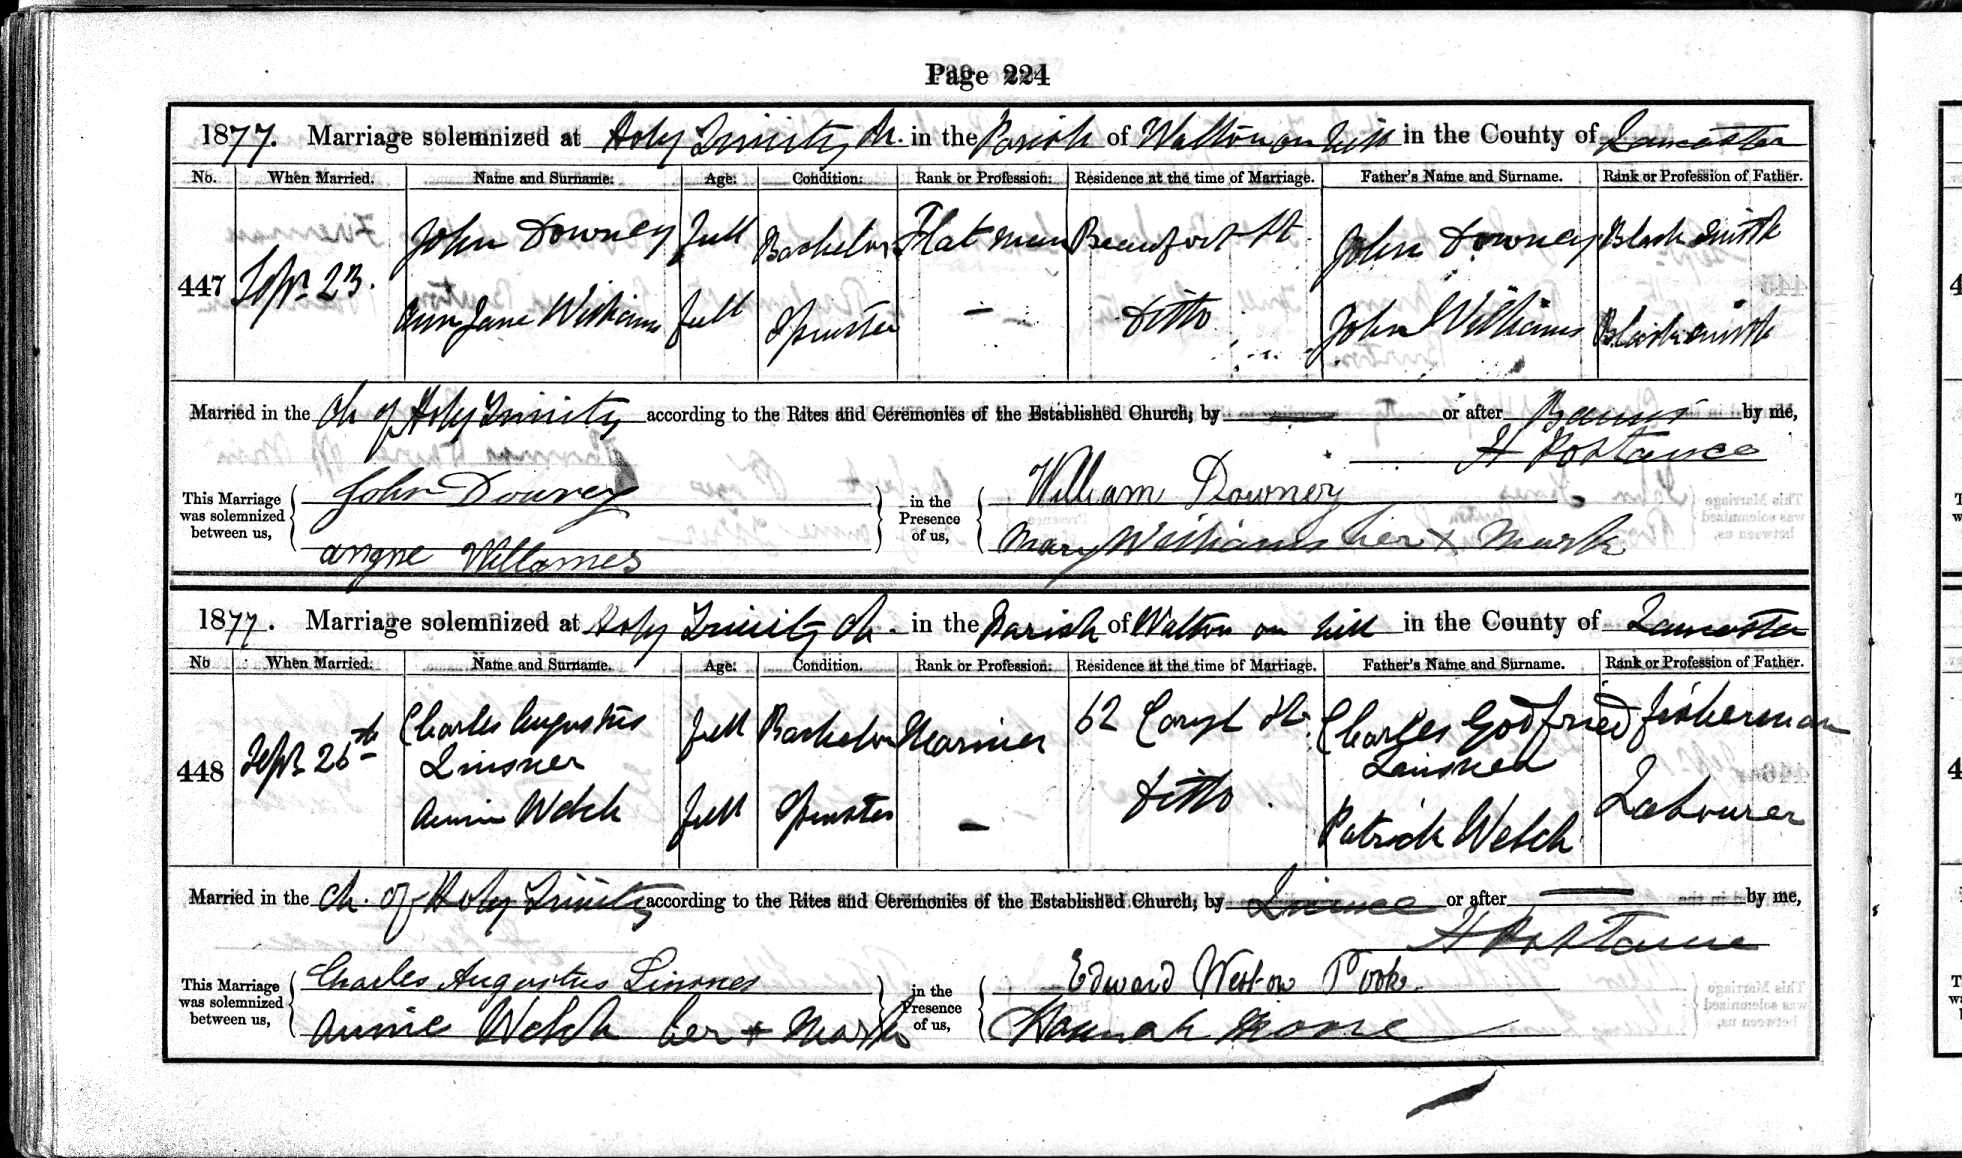 Page 224
1877. Marriage solemnized at Holy Trinity Ch. in the Parish of Walton on Hill in the County of Lancaster
No. When Married. Name and Surname. Age. Condition. Rank or Profession. Residence at the time of Marriage. Father's Name and Surname. Rank or Profession of Father.
447 Sepr 23. John Downey full Bachelor Flat man Beaufort St. John Downey Blacksmith
Ann Jane Williams full Spinster — Ditto John Williams Blacksmith
Married in the Ch of Holy Trinity according to the Rites and Ceremonies of the Established Church, by — or after Banns by me,
H Postance
This Marriage was solemnized between us, John Downey in the Presence of us, William Downey
angne Willames Mary Williams her x Mark
1877. Marriage solemnized at Holy Trinity Ch. in the Parish of Walton on Hill in the County of Lancaster
No When Married. Name and Surname. Age. Condition. Rank or Profession. Residence at the time of Marriage. Father's Name and Surname. Rank or Profession of Father.
448 Sepr 26th Charles Augustus Linsner full Bachelor Mariner 62 Caryl St. Charles Godfried Fisherman
Annie Welch full Spinster — Ditto Patrick Welch Labourer
Married in the Ch. of Holy Trinity according to the Rites and Ceremonies of the Established Church, by Licence or after — by me,
H Postance
This Marriage was solemnized between us, Charles Augustus Linsner in the Presence of us, Edward Weston Pook.
Annie Welch her + Mark Hannah Moore